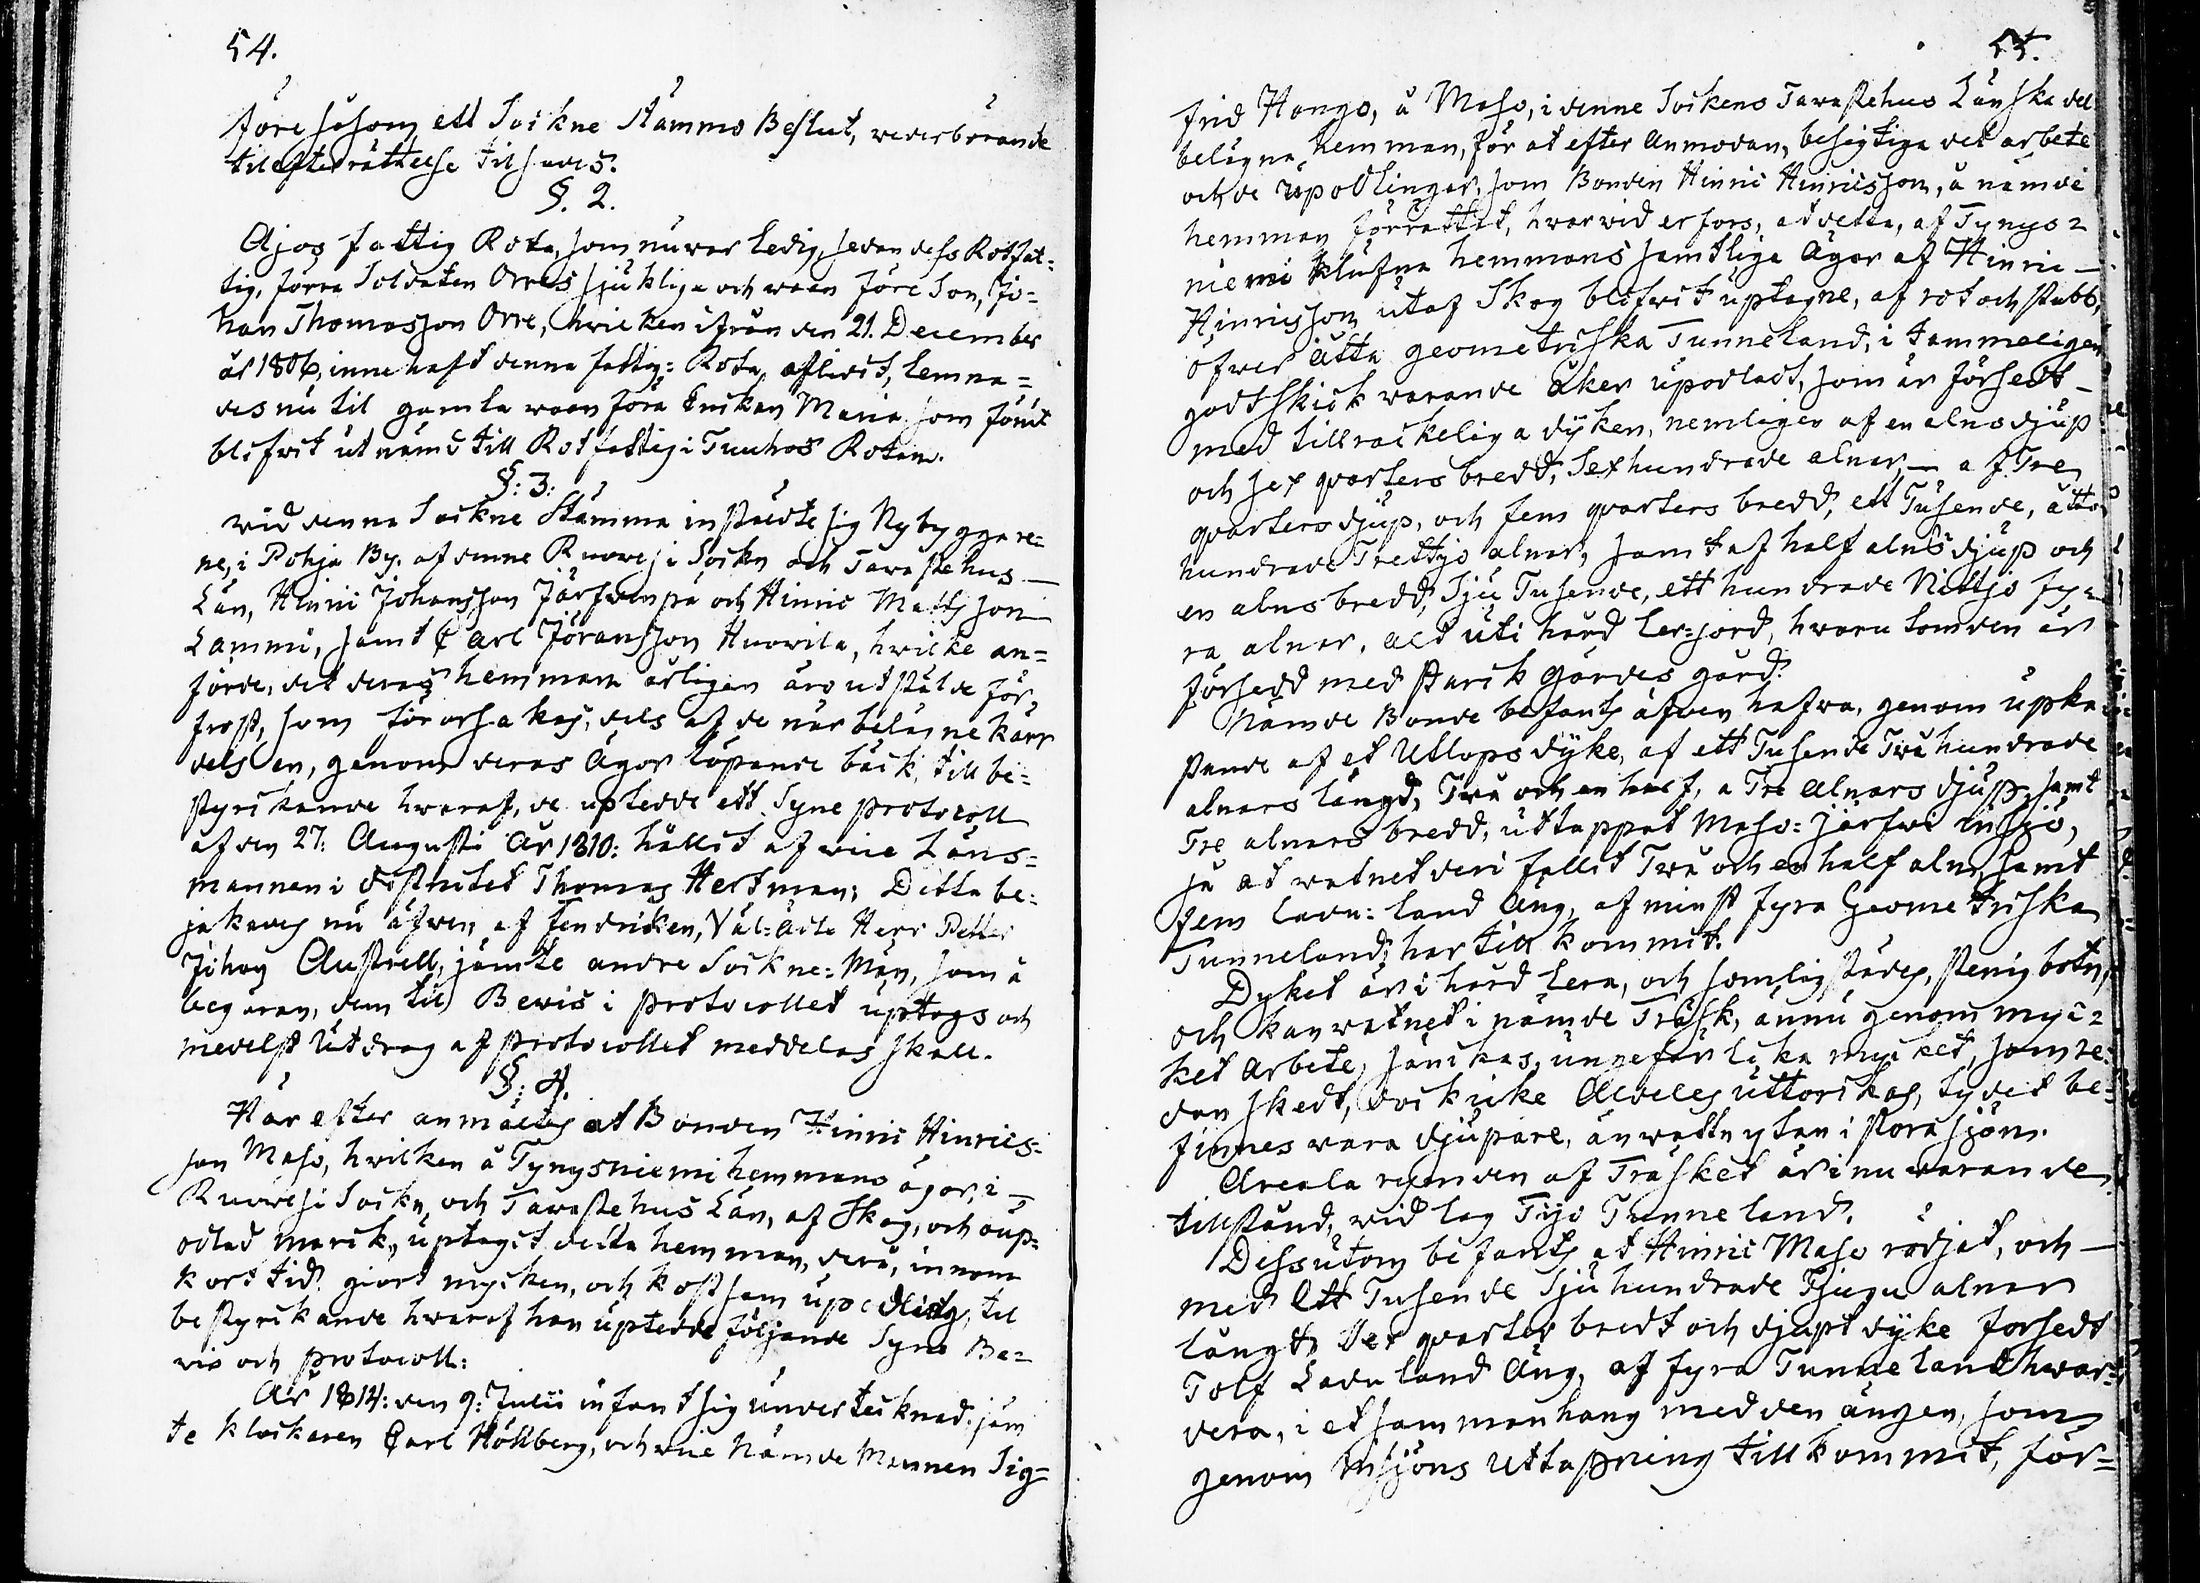 54.
före såsom ett Sockne Stämmo Beslut, wederbörande
til efterrättelse tilsades.
§. 2.
Ajos fattig Rota, som nu war ledig, sedan dess Rotfat=
tig, förra Soldaten Orres sjukliga och waan före Son, Jo=
han Thomasson Orre, hwilken ifrån den 21. December
år 1806, innehaft denna fattig= Rota, aflidit, lemna=
des nu til gamla waan föra Enckan Maria som förut
blifwit utnämd till Rotfattig i Tuuhos Rotan.
§: 3:
wid denna Sockne Stämma instälte sig Nybyggare=
ne, i Pohja By. af denne Ruowesi Socken och Tawastehus
Län, Hinric Johansson Järfwenpä och Hinric Mattsson
Lammi, samt Carl Jöransson Huowila, hwilke an=
förde, det deras hemman årligen äro utstälde för
frost, som förorsakas, dels af de när belägne kärr
dels en, genom deras Ägor löpande bäck, till be=
styrkande hwaraf, de uptedde ett Syne protocoll
af den 27: Augusti År 1810: hållit af wice Läns=
mannen i districtet Thomas Hertman; Detta be=
jakades nu äfwen af Fendricken, Väl=Ädle Herr Petter
Johan Austrell, jämte andre Sockne=Män, som å
begäran, dem til Bewis i protocollet uptogs och
medelst Utdrag af protocollet meddelas skall.
§: 4.
Här efter anmältes at Bonden Hinric Hinrics=
son Maso, hwilken å Tynysniemi hemmans ägor, i
Ruowesi Socken, och Tawastehus Län, af Skog, och oup=
odlad marck, uptagit detta hemman, derå, innom
kort tid giort mycken, och kostsam upodling, til
bestyrckande hwaraf han uptedde följande Syne Be=
wis och protocoll:
År 1814: den 9: Julii infant sig undertecknad. jäm
te klockaren Carl Hållberg, och wice Nämde Mannen Sig=
55.
frid Hango, å Maso, i denne Sockens Tawastehus Länska del
belägna hemman, för at efter anmodan, besigtiga det arbete
och de upodlingar, som Bonden Hinric Hinricsson, å nämde
hemman förrättat, hwarwid erfors, at detta, af Tynys=
niemi klufna hemmans samtliga Ägor af Hinric
Hinricsson utaf Skog blifwit uptagne, af rot och stubb,
öfwer åtta geometriska Tunneland, i tämmeligen
godt skick warande åker upodladt, som är försedt
med tillräckeliga dyken, nemligen af en alns djup
och sex qvarters bredd, Sexhundrade alnar, af Tre
qvarters djup, och fem qvarters bredd, ett Tusende, åtta
hundrade Trettjo alnar, samt af half alns djup och
en alns bredd, Sju Tusende, ett hundrade Nittjo fy=
ra alnar, alt uti hård ler=jord, hwaru tom den är
försedd med starck gärdes gård.
Nämde Bonde befants äfwen hafwa, genom upka
stande af et Utlops dyke, af ett Tusende Twå hundrade
alnars längd, Twå och en half, a Tre alnars djup, samt
Tre alnars bredd, uttappat Maso=järfwi insjö,
så at watnet deri fallit Twå och en half aln, samt
fem ladu=land Äng, af minst fyra Geometriska
Tunneland, har till kommit.
Dyket är i hård lera, och somligstädes, stenig botn,
och kan watnet i nämde Träsk, ännu genom myc=
ket arbete, sänckas, ungefär lika mycket, som re=
dan skedt, dock icke Aldeles uttorckas, ty det be=
finnes wara djupare, än wattuytan i stora sjön.
Areala rymden af Träsket är i nu warande
tillstånd, wid lag Tijo Tunneland.
Dessutom befants at Hinric Maso rödjat, och
med Ett Tusende Sju hundrade Tjugu alnar
långt Sex qvarter bredt och djupt dyke försedt
Tolf Ladu land Äng, af fyra Tunneland hwar=
dera, i et sammanhang med den ängen, som
genom insjöns uttapning tillkommit, för=